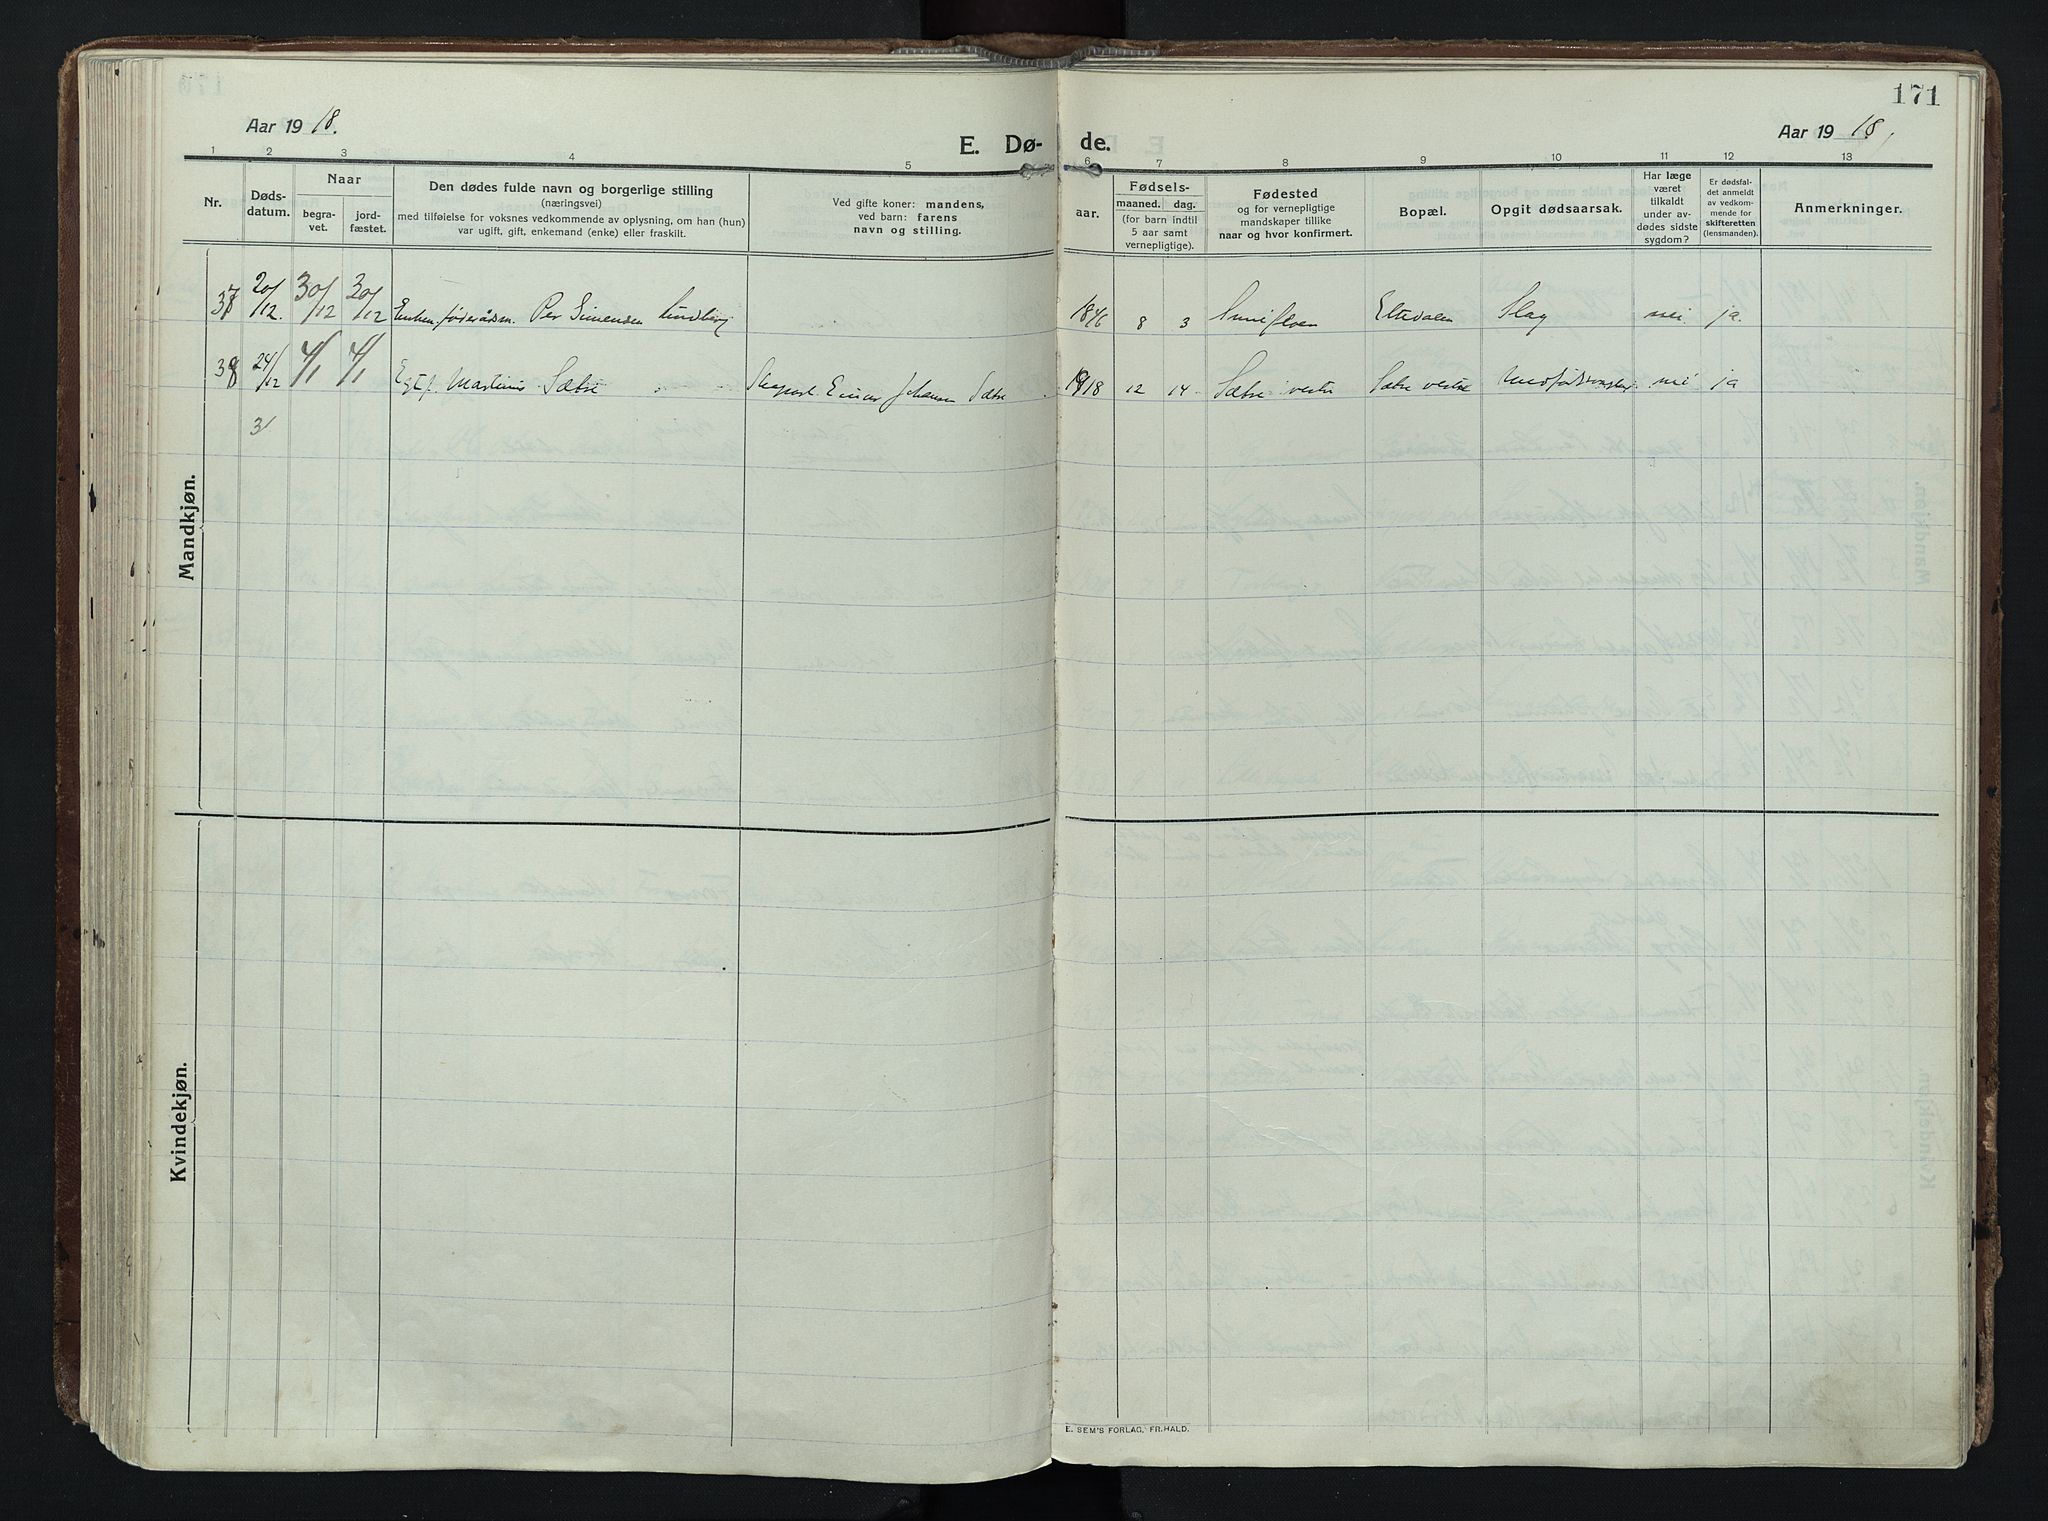 171
Aar 19 18.
E. Dø-
de.
Aar 19 18,
1 2 3 4 5 6 7 8 9 10 11 12 13
Nr.
Døds-
datum.
Naar
begra-
vet.
jord-
fæstet.
Den dødes fulde navn og borgerlige stilling
(næringsvei)
med tilføielse for voksnes vedkommende av oplysning, om han (hun)
var ugift, gift, enkemand (enke) eller fraskilt.
Ved gifte koner: mandens,
ved barn: farens
navn og stilling.
Fødsels-
aar.
maaned. dag.
(for barn indtil
5 aar samt
vernepligtige).
Fødested
og for vernepligtige
mandskaper tillike
naar og hvor konfirmert.
Bopæl.
Opgit dødsaarsak.
Har læge
været
tilkaldt
under av-
dødes sidste
sygdom?
Er dødsfal-
det anmeldt
av vedkom-
mende for
skifteretten
(lensmanden).
Anmerkninger.
Mandkjøn.
37 20/12. 30/12 30/12 Enkem. føderådsm. Per Simensen Lundberg 1846 8 3 Eltdalen Slag nei ja.
38 24/12 4/1 4/1 Egtf. Martinus Sætre Einar Johansen Sætre 1918 12 14 Sætre vestre Sætre vestre nei ja
3
Kvindekjøn.
E. SEM'S FORLAG, FR.HALD.